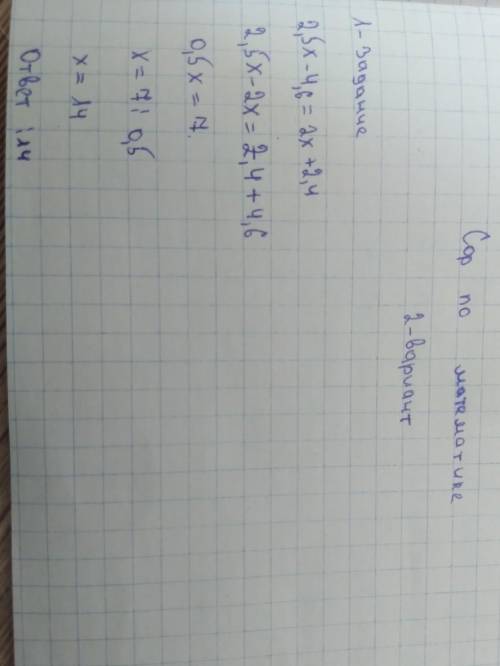 Сор по математике
2-вариант
1-задание
2,5x-4,6=2x+2,4
2,5x-2x=2,4+4,6
0,5x=7.
x=7:0,5
x=14
Ответ:14